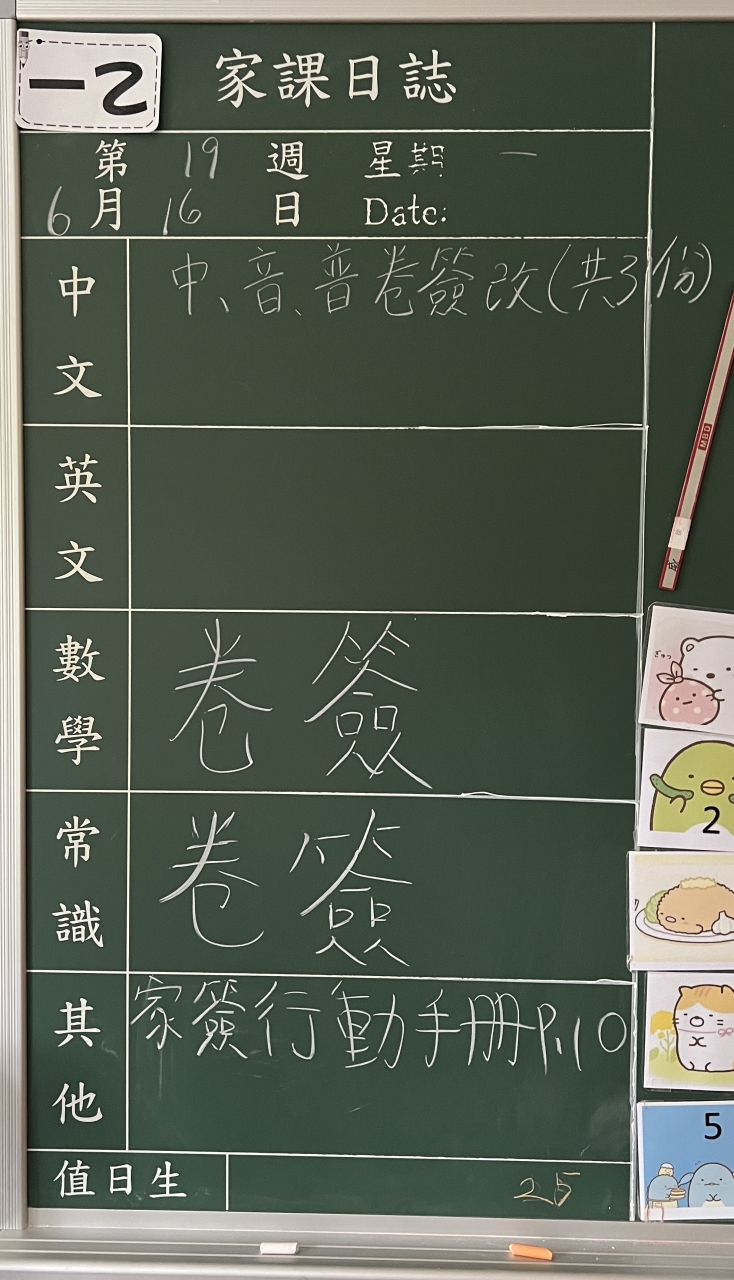 一2
家課日誌
第 19 週 星期 一
6月 16 日 Date:
中文
中、音、普卷簽改(共3份)
英文
數學
卷簽
常識
卷簽
其他
家簽行動手冊P.10
值日生 25
MBD
ぎゅっ
2
5